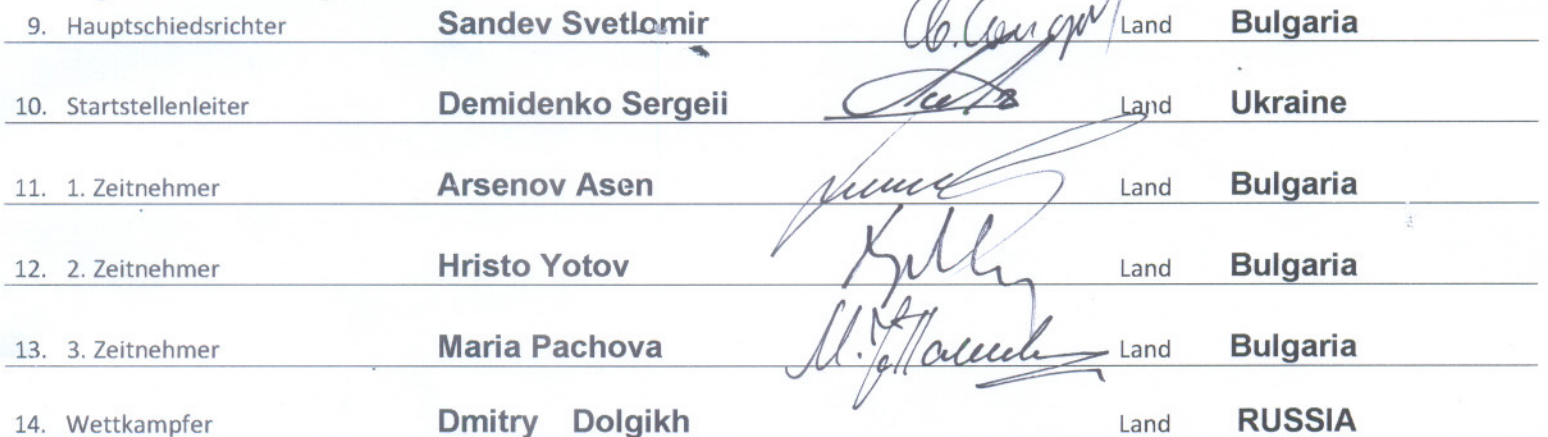 9. Hauptschiedsrichter Sandev Svetlomir Land Bulgaria
10. Startstellenleiter Demidenko Sergeii Land Ukraine
11. 1. Zeitnehmer Arsenov Asen Land Bulgaria
12. 2. Zeitnehmer Hristo Yotov Land Bulgaria
13. 3. Zeitnehmer Maria Pachova Land Bulgaria
14. Wettkampfer Dmitry Dolgikh Land RUSSIA